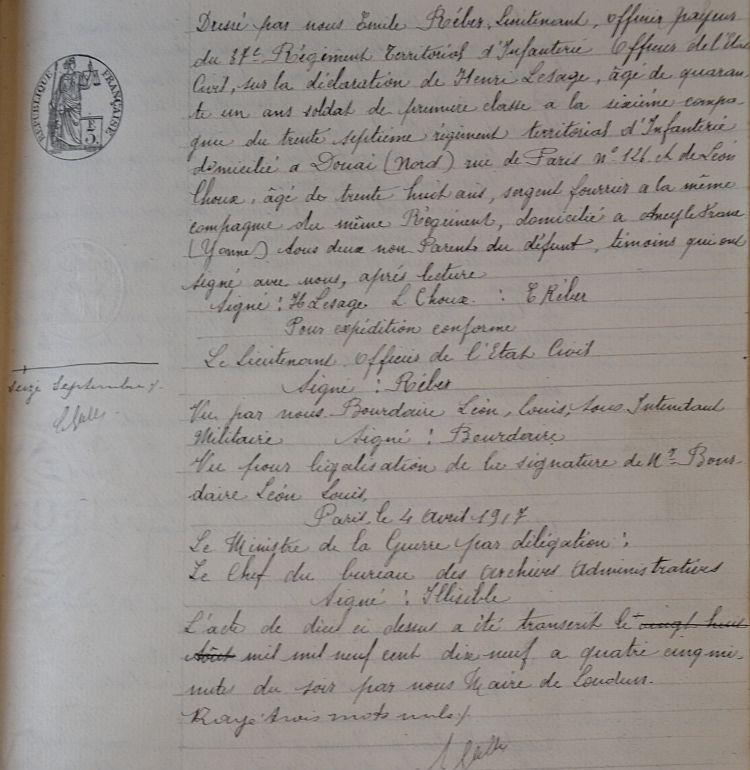 Dressé par nous Emile Réber, Lieutenant, officier payeur
du 37e Régiment Territorial d'Infanterie Officier de l'Etat
Civil, sur la déclaration de Henri Lesage, âgé de quaran-
te un ans soldat de première classe a la sixième compa-
gnie du trente septième régiment territorial d'Infanterie
domicilié a Douai (Nord) rue de Paris no 126 et de Léon
Choux, âgé de trente huit ans, sergent fourrier a la même
compagnie du même Régiment, domicilié a Ancy le Franc
(Yonne) tous deux non Parents du défunt, témoins qui ont
signé avec nous, après lecture
Signé : H Lesage L Choux : E Réber
Pour expédition conforme
Le Lieutenant Officier de l'Etat Civil
Signé : Réber
Vu par nous Bourdaire Léon, Louis, Sous Intendant
Militaire Signé : Bourdaire
Vu pour légalisation de la signature de Mr Bour-
daire Léon Louis,
Paris, le 4 Avril 1917
Le Ministre de la Guerre par délégation :
Le Chef du bureau des Archives Administratives
Signé : Illisible
L'acte de décès ci dessus a été transcrit le vingt huit
Août mil mil neuf cent dix neuf a quatre cinq mi-
nutes du soir par nous Maire de Loudun.
Rayé trois mots nuls
seize Septembre
REPUBLIQUE FRANÇAISE